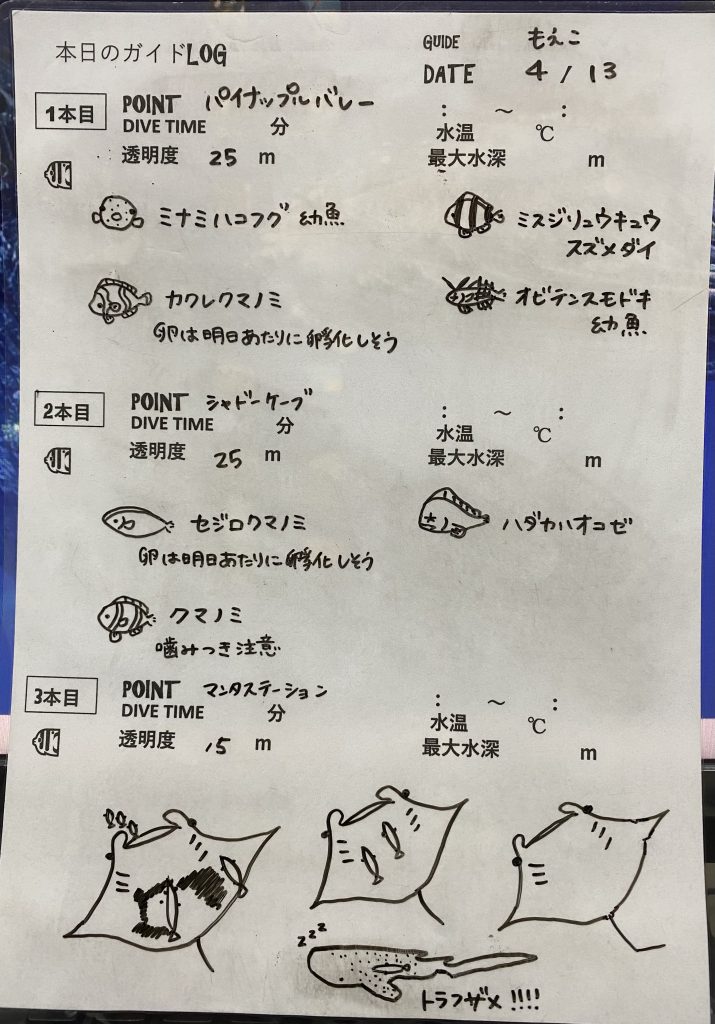 本日のガイドLOG
GUIDE もえこ
DATE 4/13
1本目 POINT パイナップルバレー : ～ :
DIVE TIME 分 水温 ℃
透明度 25 m 最大水深 m
ミナミハコフグ 幼魚
ミスジリュウキュウ
スズメダイ
カクレクマノミ
卵は明日あたりに孵化しそう
オビテンスモドキ
幼魚
2本目 POINT シャドーケーブ : ～ :
DIVE TIME 分 水温 ℃
透明度 25 m 最大水深 m
セジロクマノミ
卵は明日あたりに孵化しそう
ハダカハオコゼ
クマノミ
噛みつき注意
3本目 POINT マンタステーション : ～ :
DIVE TIME 分 水温 ℃
透明度 15 m 最大水深 m
zzz
トラフザメ!!!!